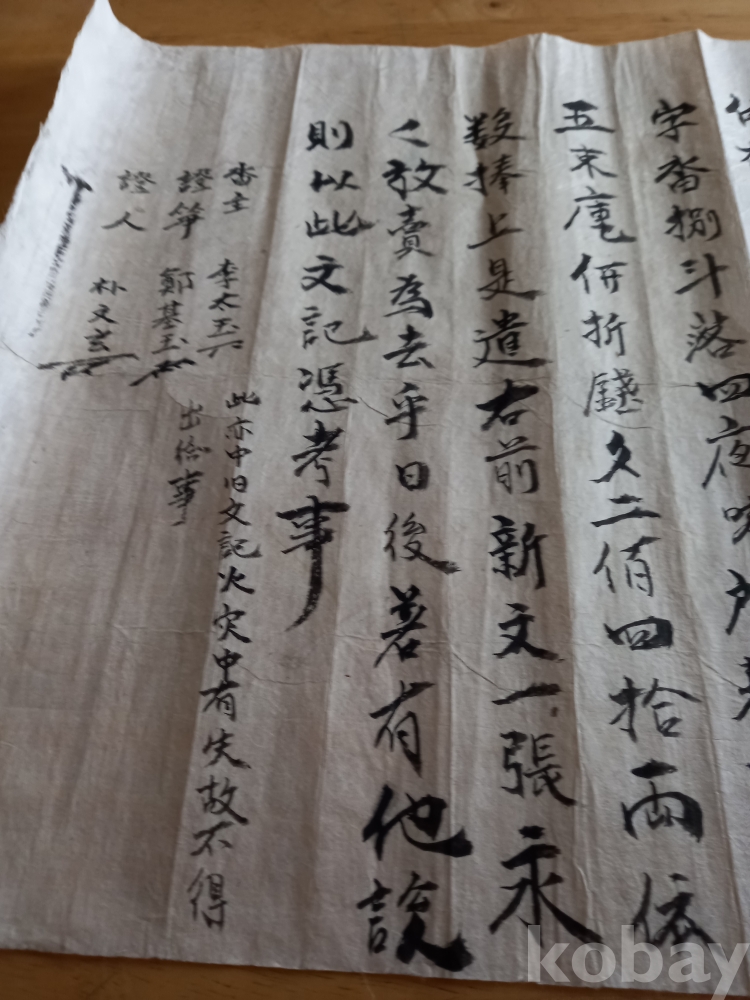 字畓捌斗落四夜味所
五束庫価折錢文二佰四拾兩依
数捧上是遣右前新文一張永
々放賣為去乎日後若有他談
則以此文記憑考事
畓主 李太玉
此亦中旧文記火灾中有失故不得
出給事
證筆 鄭基玉
證人 朴文玄
kobay